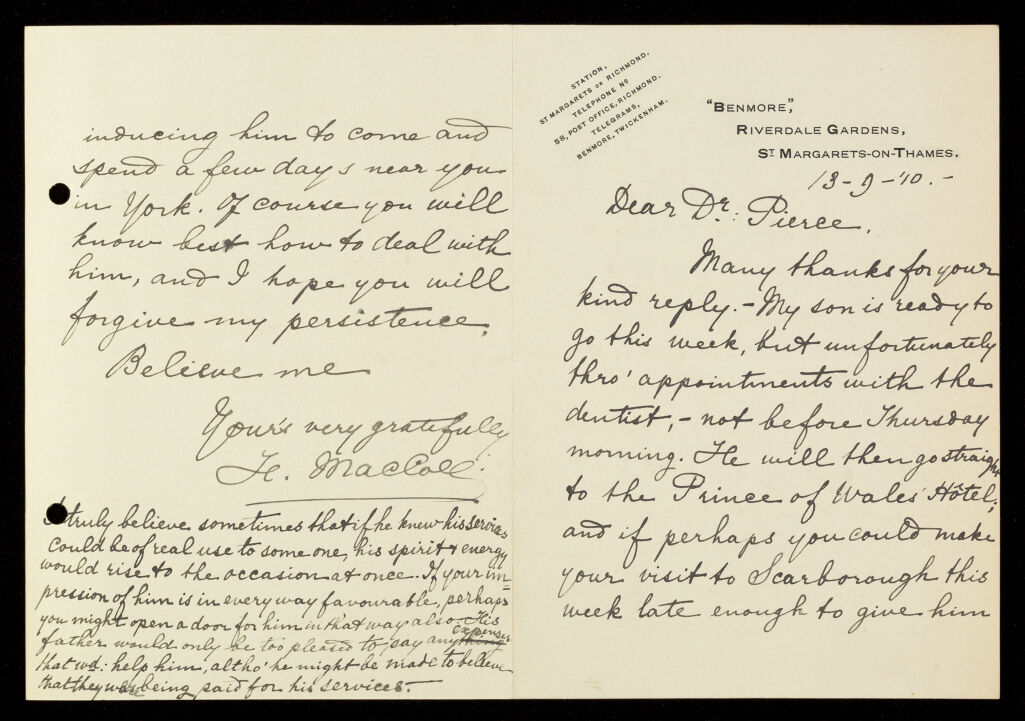 STATION,
ST MARGARETS OR RICHMOND.
TELEPHONE No
58, POST OFFICE, RICHMOND.
TELEGRAMS,
BENMORE, TWICKENHAM.
"BENMORE",
RIVERDALE GARDENS,
ST MARGARETS-ON-THAMES.
13-9-'10.-
Dear Dr: Pierce.
Many thanks for your
kind reply. - My son is ready to
go this week, but unfortunately
thro' appointments with the
dentist, - not before Thursday
morning. He will then go straight
to the Prince of Wales' Hôtel;
and if perhaps you could make
your visit to Scarborough this
week late enough to give him
inducing him to come and
spend a few days near you
in York. Of course you will
know best how to deal with
him, and I hope you will
forgive my persistence.
Believe me
Your's very gratefully
H. MacColl.
I truly believe sometimes that if he knew his services
could be of real use to some one, his spirit & energy
would rise to the occasion at once. If your im=
pression of him is in every way favourable, perhaps
you might open a door for him in that way also. His
father would only be too pleased to pay any thing expenses
that wd: help him, altho' he might be made to believe
that they were being paid for his services.-